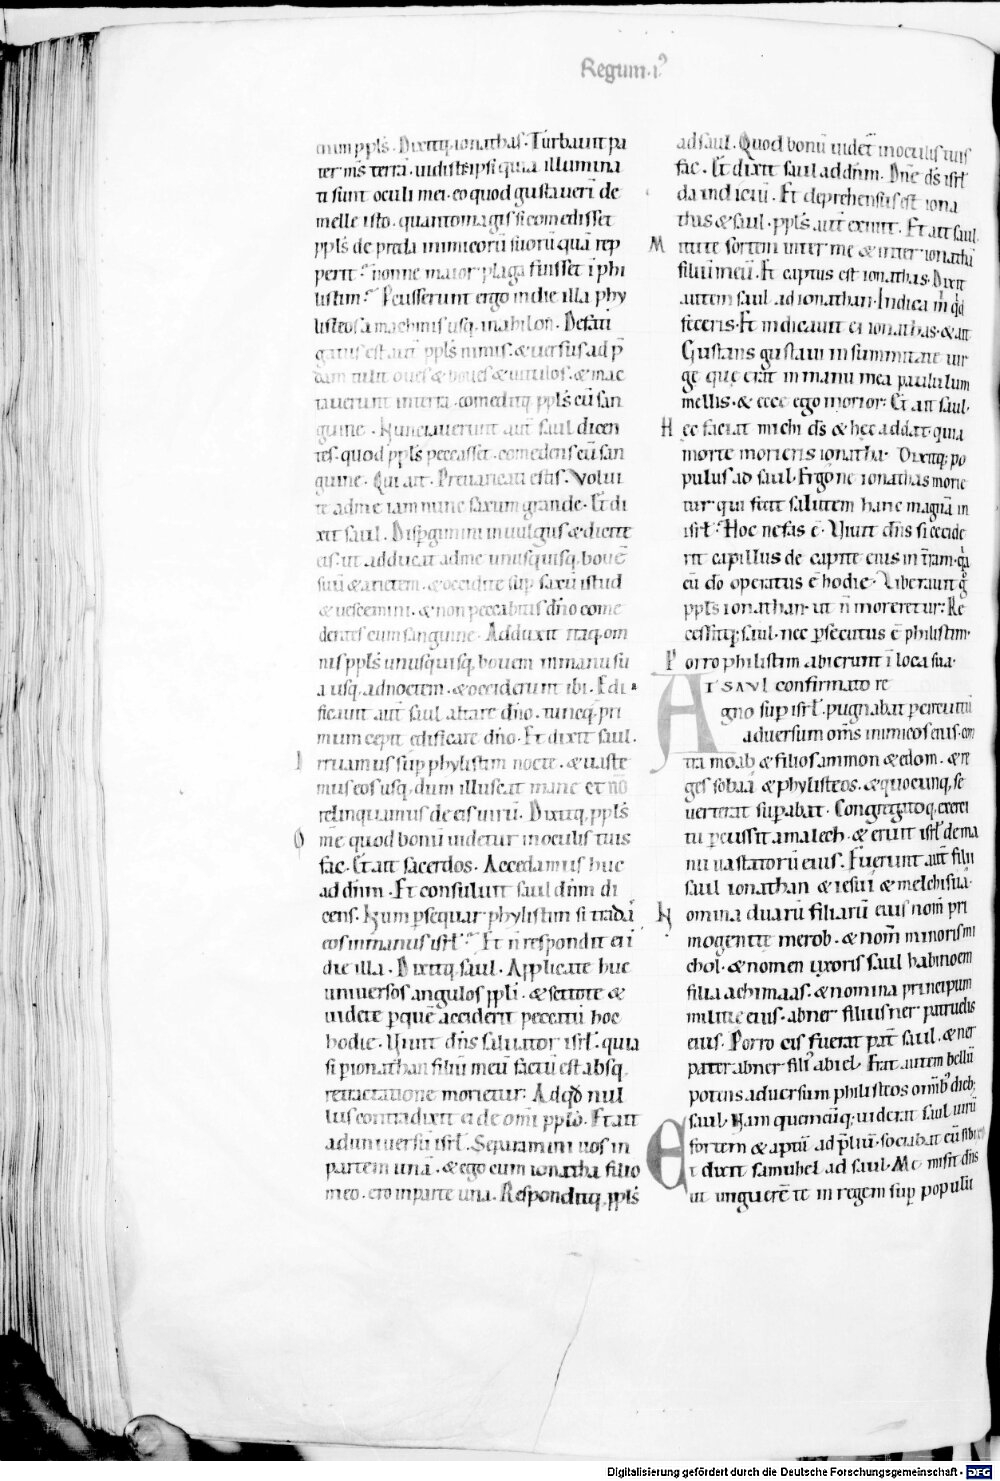 Regum·i⁹
cium ppl̄s. Dixitq; ionathas. Turbauit pa
ter m̄s terrā. uidistis ipsi quia illumina
ti sunt oculi mei. eo quod gustauerī de
melle isto. quantomagis si comedisset
ppl̄s de preda inimicorū suorū quā rep
perit? nonne maior plaga fuisset ī phi
listim? Percusserunt ergo in die illa phy
listeos a machmis usq; in ahilon. Defati
gatus est aut̄ ppl̄s nimis. & uersus ad p̄
dam tulit oues & boues & uitulos. & mac
tauerunt in terra. comeditq; ppl̄s cū san
guine. Nunciauerunt aut̄ saul dicen
tes. quod ppl̄s peccasset. comedens cū san
guine. Qui ait. Preuaricati estis. Volui
te ad me iam nunc saxum grande. Et di
xit saul. Disp̄gimini in uulgus & dicite
eis. ut adducat ad me unusquisq; bouē
suū & arietem. & occidite sup̄ saxū istud
& uescemini. & non peccabitis dn̄o come
dentes cum sanguine. Adduxit itaq; om
nis ppl̄s unusquisq; bouem in manu su
a usq; ad noctem. & occiderunt ibi. Edi
ficauit aut̄ saul altare dn̄o. tuncq; pri
mum cepit edificare dn̄o. Et dixit saul.
Irruamus sup̄ phylistim nocte. & uaste
mus eos usq; dum illuscat mane et nō
relinquamus de eis uirū. Dixitq; ppl̄s
Om̄e quod bonū uidetur in oculis tuis
fac. Et ait sacerdos. Accedamus huc
ad dn̄m. Et consuluit saul dn̄m di
cens. Num p̄sequar phylistim si tradā
eos in manus isrl̄? Et n̄ respondit ei ī
die illa. Dixitq; saul. Applicate huc
uniuersos angulos ppl̄i. & scitote &
uidete p̄ quē acciderit peccatū hoc
hodie. Uiuit dn̄s saluator isrl̄. quia
si p̄ ionathan filiū meū factū est absq;
retractatione morietur. Ad qd̄ nul
lus contradixit ei de om̄i ppl̄o. Et ait
ad uniuersū isrl̄. Separamini uos in
partem unā. & ego cum ionatha filio
meo. ero in parte una. Responditq; ppl̄s
ad saul. Quod bonū uidet̄ in oculis tuis
fac. Et dixit saul ad dn̄m. Dn̄e ds̄ isrl̄
da indiciū. Et deprehensus est iona
thas & saul. ppl̄s aut̄ exiuit. Et ait saul.
Mittite sortem inter me & inter ionathā
filiū meū. Et captus est ionathas. Dixit
autem saul ad ionathan. Indica m̄ qd̄
feceris. Et indicauit ei ionathas. & ait
Gustans gustaui in summitate uir
ge que erat in manu mea paululum
mellis. & ecce ego morior. Et ait saul.
Hec faciat michi ds̄ & hec addat. quia
morte morieris ionatha. Dixitq; po
pulus ad saul. Ergone ionathas morie
tur qui fecit salutem hanc magnā in
isrl̄. Hoc nefas ē. Uiuit dn̄s si cecide
rit capillus de capite eius in t̄ram. qā
cū do operatus ē hodie. Liberauit g̊
ppl̄s ionathan. ut n̄ moreretur. Re
cessitq; saul. nec p̄secutus ē philistim.
Porro philistim abierunt ī loca sua.
AT SAVL confirmato re
gno sup̄ isrl̄. pugnabat per circuitū
aduersum om̄s inimicos eius. con
tra moab & filios ammon & edom. & re
ges sobaā & phylisteos. & quocunq; se
uerterat sup̄abat. Congregatoq; exerci
tu p̄cussit amalech. & eruit isrl̄ de ma
nu uastatorū eius. Fuerunt aut̄ filii
saul ionathan & iesui & melchisua.
Nomina duarū filiarū eius nom̄ pri
mogenite merob. & nom̄ minoris mi
chol. & nomen uxoris saul hahinoem
filia achimaas. & nomina principum
militie eius. abner filius ner patruelis
eius. Porro cis fuerat pat̄ saul. & ner
pater abner fili⁹ abiel. Erat autem bellū
potens aduersum philisteos omīb⁹ dieb;
saul. Nam quemcūq; uiderat saul uirū
fortem & aptū ad p̄liū. sociabat eū sibi
Et dixit samuhel ad saul. Me misit dn̄s
ut unguerē te in regem sup̄ populū
Digitalisierung gefördert durch die Deutsche Forschungsgemeinschaft - DFG